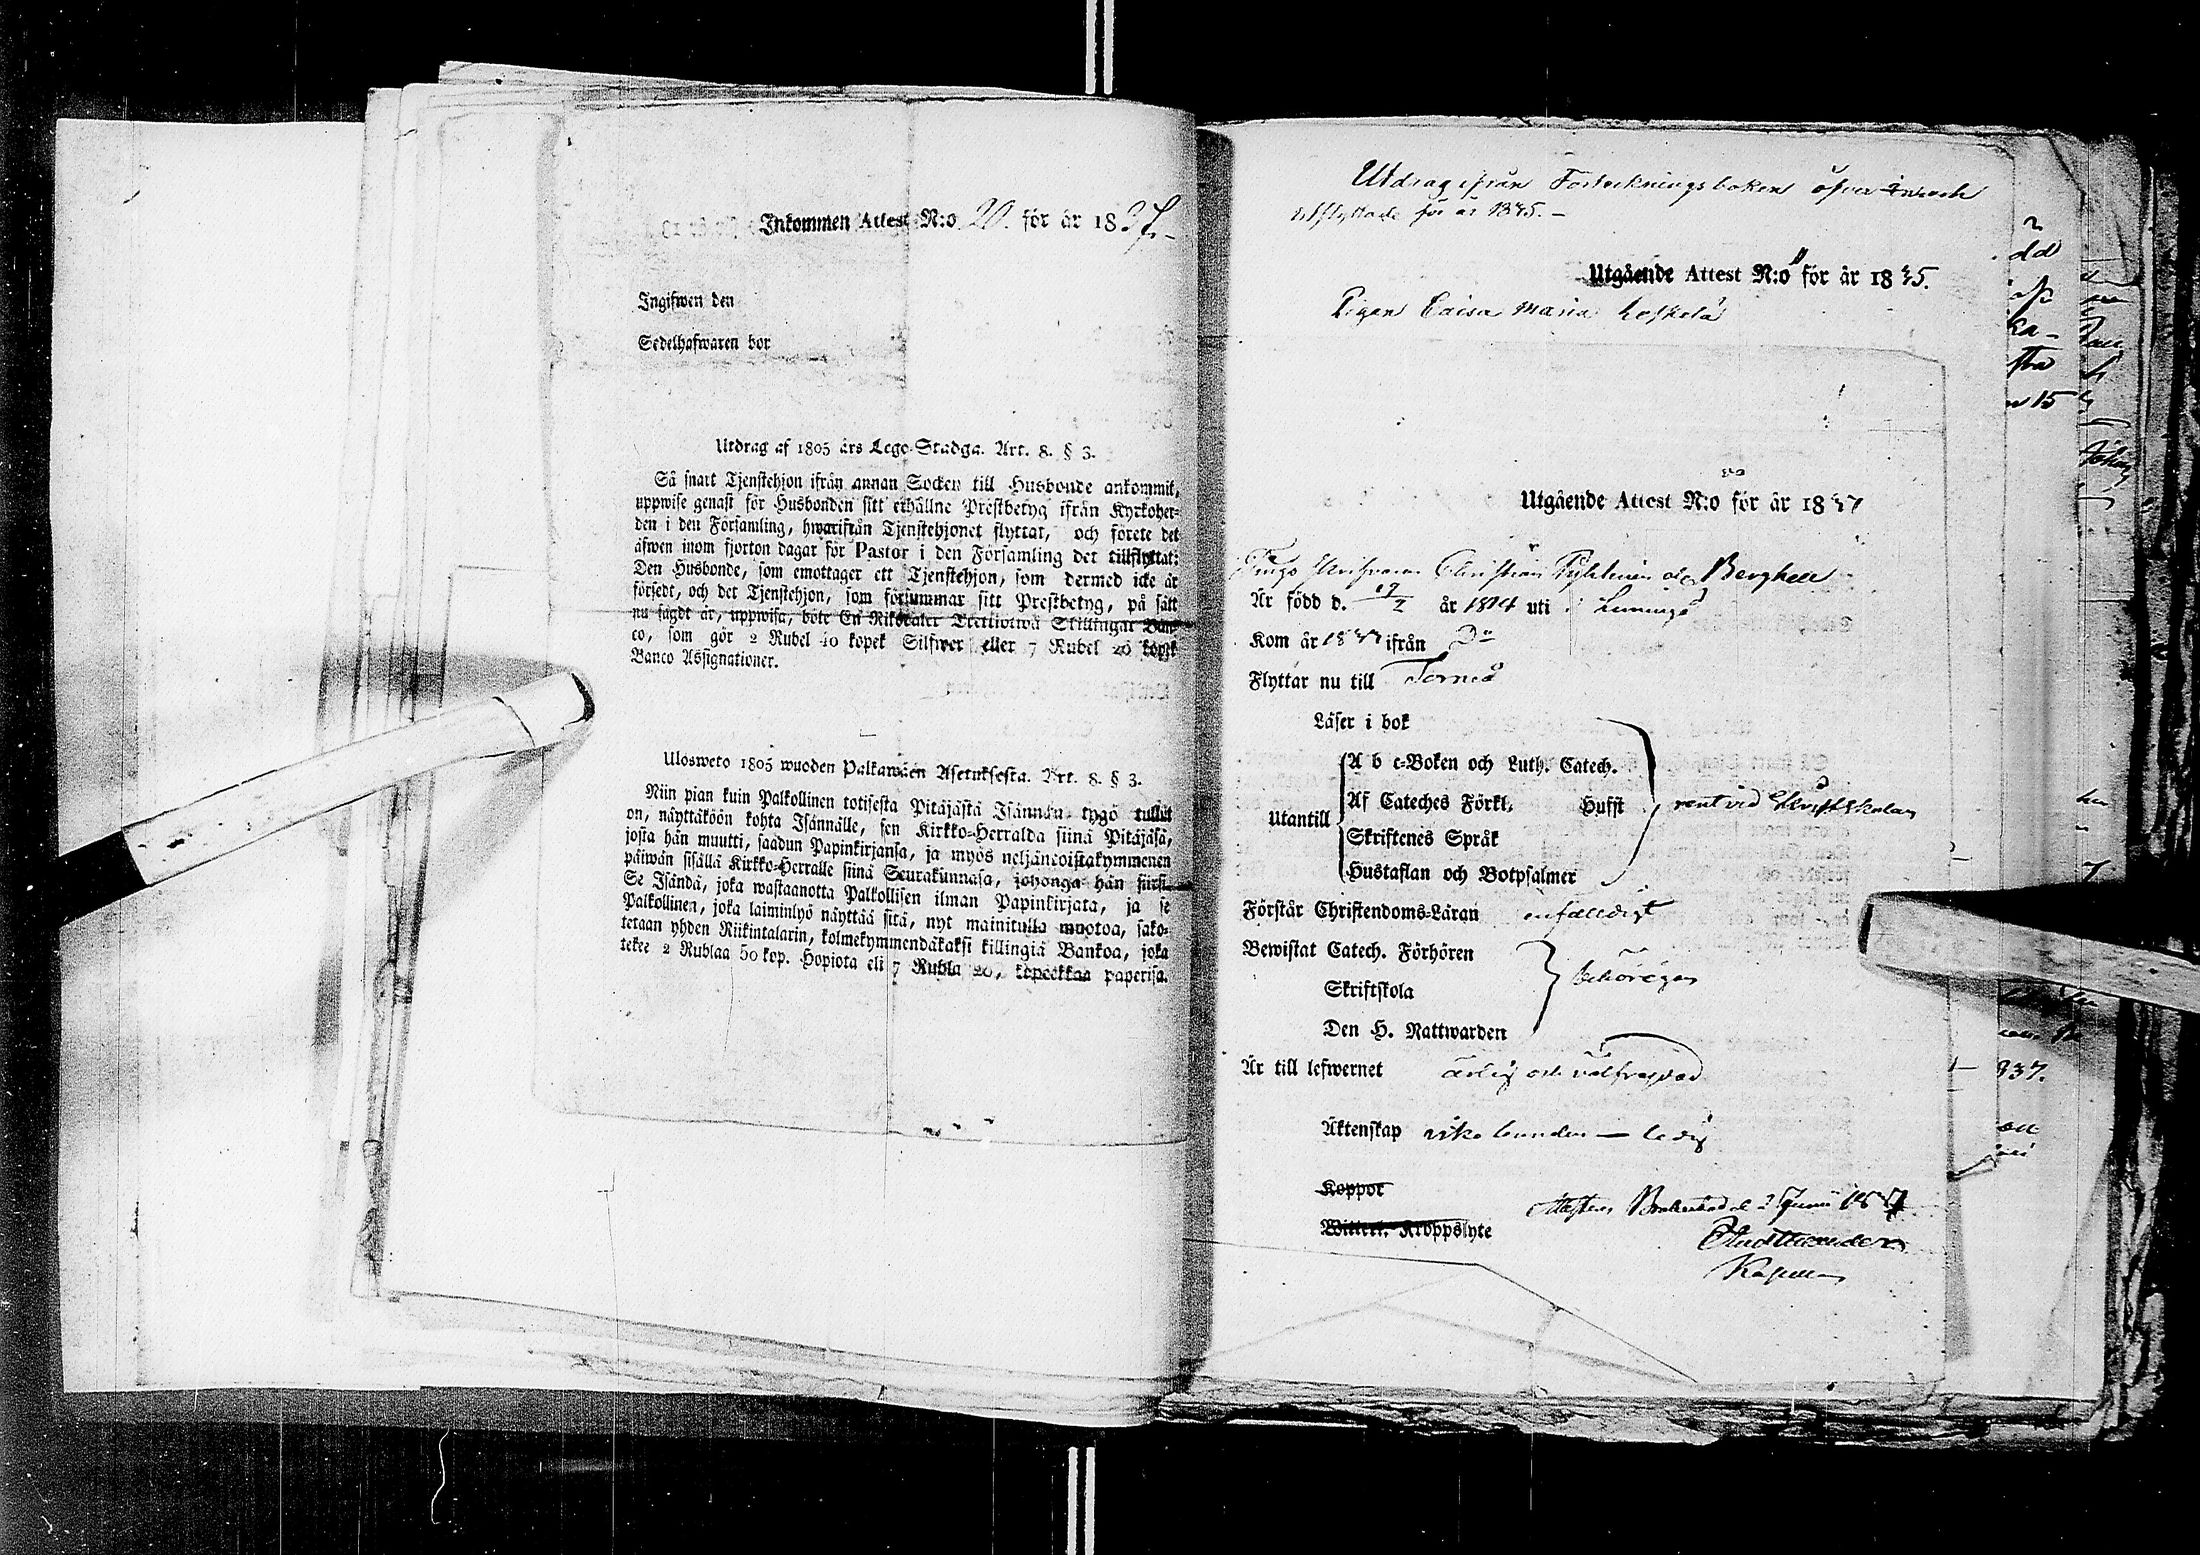 Inkommen Attest N:o 20. för år 1837.
Ingifwen den
Sedelhafwaren bor
Utdrag af 1805 års Lego-Stadga. Art. 8. § 3.
Så snart Tjenstehjon ifrån annan Socken till Husbonde ankommit,
uppwise genast för Husbonden sitt erhållne Prestbetyg ifrån Kyrkoher-
den i den Församling, hwarifrån Tjenstehjonet flyttat, och förete det
äfwen inom fjorton dagar för Pastor i den Församling det tillflyttat:
Den Husbonde, som emottager ett Tjenstehjon, som dermed icke är
försedt, och det Tjenstehjon, som försummar sitt Prestbetyg, på sätt
nu sagdt är, uppwisa, böte En Riksdaler Trettiotwå Skillingar Ban-
co, som gör 2 Rubel 40 kopek Silfwer eller 7 Rubel 20 kopek
Banco Assignationer.
Ulosweto 1805 wuoden Palkawäen Asetuksesta. Art. 8. § 3.
Niin pian kuin Palkollinen totisesta Pitäjästä Isännän tygö tullut
on, näyttäköön kohta Isännälle, sen Kirkko-Herralda siinä Pitäjäsä,
josta hän muutti, saadun Papinkirjansa, ja myös neljäntoistakymmenen
päiwän sisällä Kirkko-Herralle siinä Seurakunnasa, johonga hän siirsi.
Se Isändä, joka wastaanotta Palkollisen ilman Papinkirjata, ja se
Palkollinen, joka laiminlyö näyttää sitä, nyt mainitulla muotoa, sako-
tetaan yhden Riikintalarin, kolmekymmendäkaksi killingiä Bankoa, joka
tekee 2 Rublaa 50 kop. Hopiota eli 7 Rubla 20, kopeekkaa paperisa.
Utdrag ifrån Förteckningsboken öfver In och
utflyttade för år 1835.
Utgående Attest N:o för år 1835.
Pigan Caisa Maria Koskela
Utgående Attest N:o för år 1837
Christian Pykkinen Berghell
Är född d. 17/2 år 1814 uti Limingo
Kom år 18 ifrån Do
Flyttar nu till Torneå
Läser i bok
Utantill
A b c-Boken och Luth. Catech.
Af Cateches Förkl. Hufft rent vid Skriftskolan
Skriftenes Språk
Hustaflan och Botpsalmer
Förstår Christendoms-Läran enfaldigt
Bewistat Catech. Förhören
Skriftskola behörigen
Den H. Nattwarden
Är till lefwernet ärlig och välfrejdad
Äktenskap icke bunden — ledig
Koppor
Witterl. Kroppslyte
Brahestad d. 2 Junii 1837